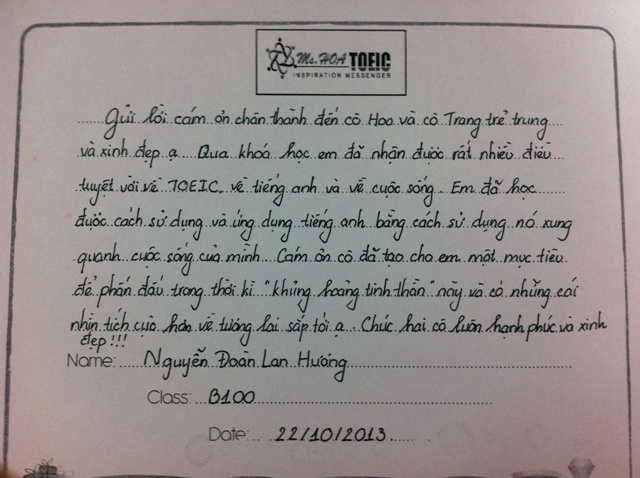 Ms. HOA TOEIC
INSPIRATION MESSENGER
Gửi lời cám ơn chân thành đến cô Hoa và cô Trang trẻ trung
và xinh đẹp ạ. Qua khoá học em đã nhận được rất nhiều điều
tuyệt vời về TOEIC, về tiếng anh và về cuộc sống. Em đã học
được cách sử dụng và ứng dụng tiếng anh bằng cách sử dụng nó xung
quanh cuộc sống của mình. Cám ơn cô đã tạo cho em một mục tiêu
để phấn đấu trong thời kì "khủng hoảng tinh thần" này và có những cái
nhìn tích cực hơn về tương lai sắp tới ạ. Chúc hai cô luôn hạnh phúc và xinh
đẹp!!!
Name: Nguyễn Đoàn Lan Hương
Class: B100
Date: 22/10/2013